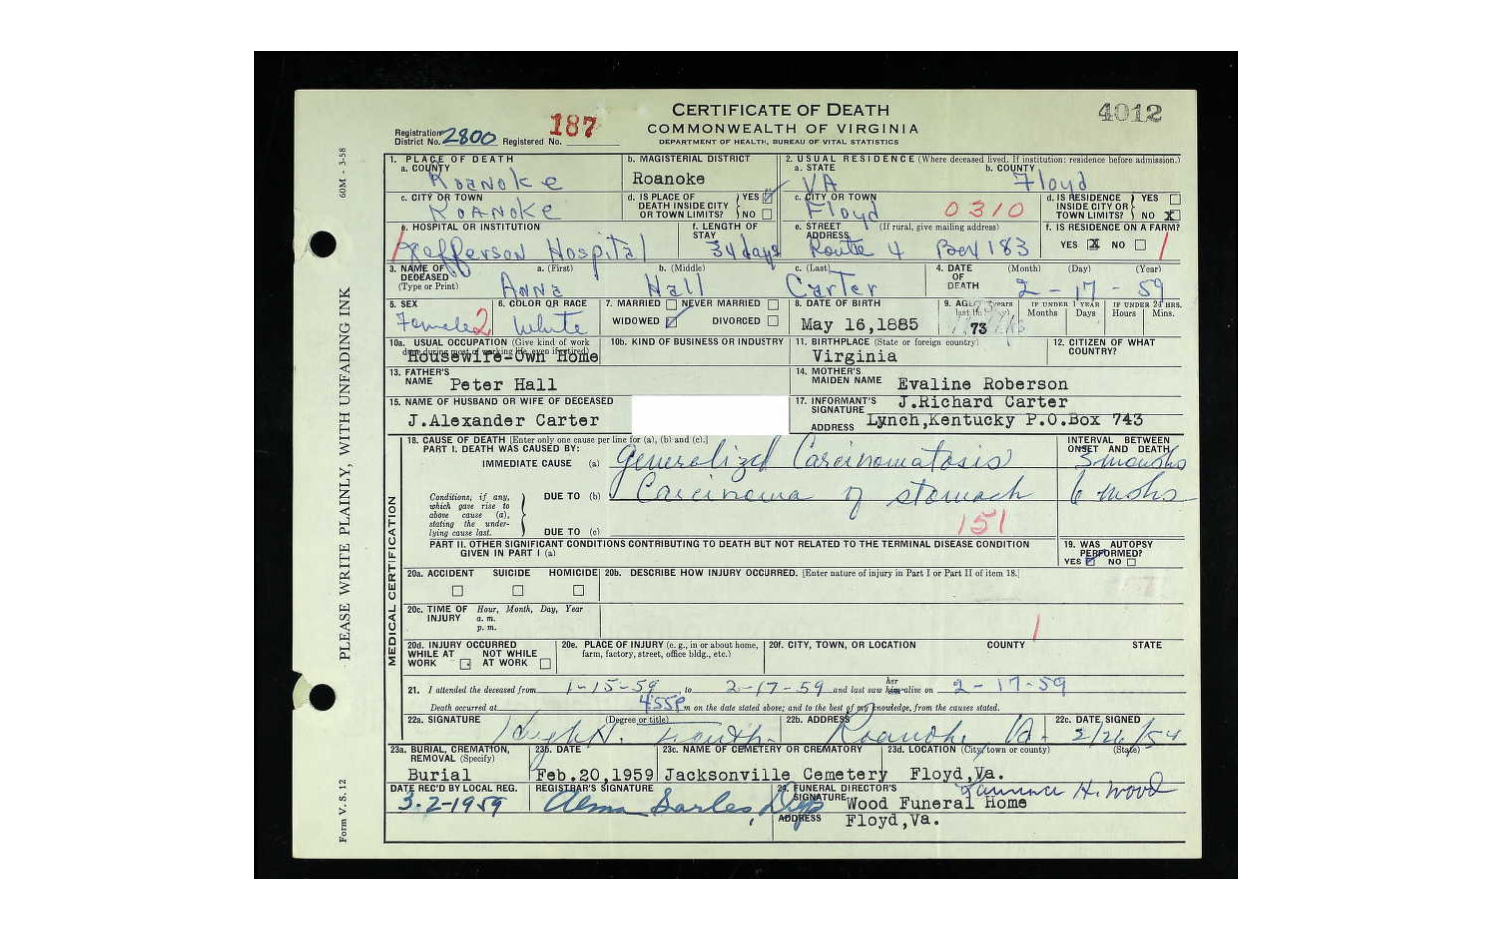 CERTIFICATE OF DEATH
4012
COMMONWEALTH OF VIRGINIA
DEPARTMENT OF HEALTH, BUREAU OF VITAL STATISTICS
Registration District No. 2800 Registered No. 187
60M - 3-58
PLEASE WRITE PLAINLY, WITH UNFADING INK
Form V. S. 12
1. PLACE OF DEATH
a. COUNTY Roanoke
b. MAGISTERIAL DISTRICT Roanoke
2. USUAL RESIDENCE (Where deceased lived. If institution: residence before admission.)
a. STATE VA b. COUNTY Floyd
c. CITY OR TOWN Roanoke
d. IS PLACE OF DEATH INSIDE CITY OR TOWN LIMITS? YES NO
c. CITY OR TOWN Floyd 0310
d. IS RESIDENCE INSIDE CITY OR TOWN LIMITS? YES NO X
e. HOSPITAL OR INSTITUTION Jefferson Hospital
f. LENGTH OF STAY 34 days
e. STREET ADDRESS (If rural, give mailing address) Route 4 Box 183
f. IS RESIDENCE ON A FARM? YES X NO
3. NAME OF DECEASED (Type or Print) a. (First) Anna b. (Middle) Hall c. (Last) Carter
4. DATE OF DEATH (Month) (Day) (Year) 2 - 17 - 59
5. SEX Female 2
6. COLOR OR RACE White
7. MARRIED NEVER MARRIED WIDOWED DIVORCED
8. DATE OF BIRTH May 16,1885
9. AGE 73 IF UNDER 1 YEAR Months Days IF UNDER 24 HRS. Hours Mins.
10a. USUAL OCCUPATION (Give kind of work done during most of working life, even if retired) Housewife-Own Home
10b. KIND OF BUSINESS OR INDUSTRY
11. BIRTHPLACE (State or foreign country) Virginia
12. CITIZEN OF WHAT COUNTRY?
13. FATHER'S NAME Peter Hall
14. MOTHER'S MAIDEN NAME Evaline Roberson
15. NAME OF HUSBAND OR WIFE OF DECEASED J.Alexander Carter
17. INFORMANT'S SIGNATURE J.Richard Carter
ADDRESS Lynch,Kentucky P.O.Box 743
MEDICAL CERTIFICATION
18. CAUSE OF DEATH [Enter only one cause per line for (a), (b) and (c).]
PART I. DEATH WAS CAUSED BY:
INTERVAL BETWEEN ONSET AND DEATH
IMMEDIATE CAUSE (a) Generalized Carcinomatosis 3 months
Conditions, if any, which gave rise to above cause (a), stating the underlying cause last.
DUE TO (b) Carcinoma of stomach 6 moths
DUE TO (c) 151
PART II. OTHER SIGNIFICANT CONDITIONS CONTRIBUTING TO DEATH BUT NOT RELATED TO THE TERMINAL DISEASE CONDITION GIVEN IN PART I (a)
19. WAS AUTOPSY PERFORMED? YES NO
20a. ACCIDENT SUICIDE HOMICIDE
20b. DESCRIBE HOW INJURY OCCURRED. [Enter nature of injury in Part I or Part II of item 18.]
20c. TIME OF INJURY Hour, Month, Day, Year a. m. p. m.
20d. INJURY OCCURRED WHILE AT WORK NOT WHILE AT WORK
20e. PLACE OF INJURY (e. g., in or about home, farm, factory, street, office bldg., etc.)
20f. CITY, TOWN, OR LOCATION COUNTY STATE
21. I attended the deceased from 1-15-59 to 2-17-59 and last saw him her alive on 2-17-59
Death occurred at 4:55P m on the date stated above; and to the best of my knowledge, from the causes stated.
22a. SIGNATURE (Degree or title)
22b. ADDRESS Roanoke Va.
22c. DATE SIGNED
23a. BURIAL, CREMATION, REMOVAL (Specify) Burial
23b. DATE Feb.20,1959
23c. NAME OF CEMETERY OR CREMATORY Jacksonville Cemetery
23d. LOCATION (City, town or county) (State) Floyd,Va.
DATE REC'D BY LOCAL REG. 3-2-1959
REGISTRAR'S SIGNATURE
24. FUNERAL DIRECTOR'S SIGNATURE H. Wood
Wood Funeral Home
ADDRESS Floyd,Va.